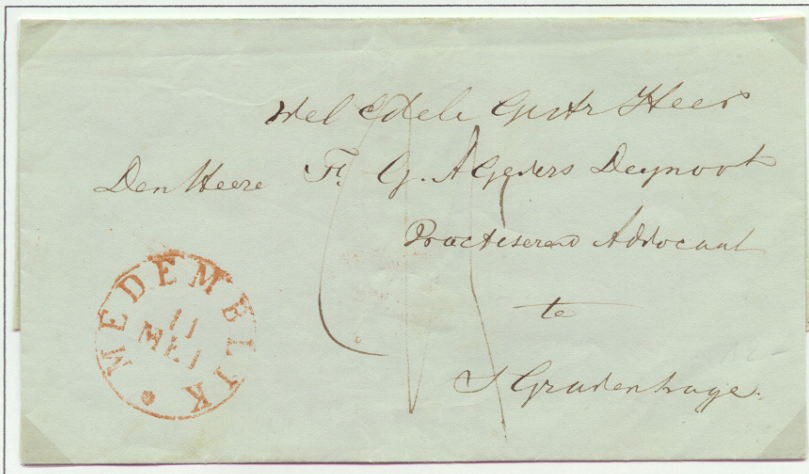 Wel Edele Gestr Heer
Den Heere F. G. A Gevers Deynoot
Practiserend Advocaat
te
S Gravenhage.
MEDEMBLIK
11
MEI